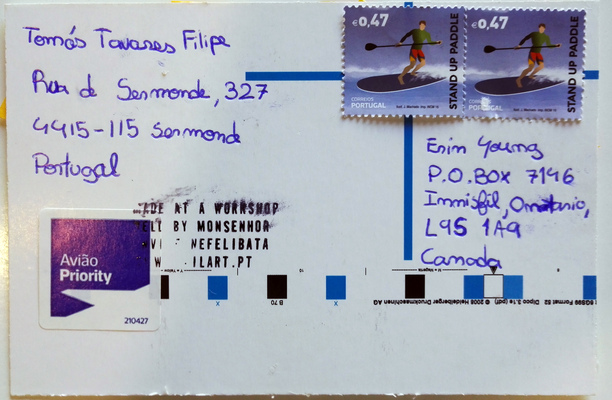 Tomás Tavares Filipe
Rua de Sermonde, 327
4415-115 Sermonde
Portugal
€0,47
STAND UP PADDLE
CORREIOS
PORTUGAL
€0,47
STAND UP PADDLE
CORREIOS
PORTUGAL
Erin Young
P.O.BOX 7146
Innisfil, Onntario,
L9S 1A9
Canada
ADE AT A WORKSHOP
ELD BY MONSENHOR
NEFELIBATA
ILART.PT
Avião
Priority
210427
B 70
X
10
X
8
Dipco 3.1e (pdf) © 2008 Heidelberger Druckmaschinen AG